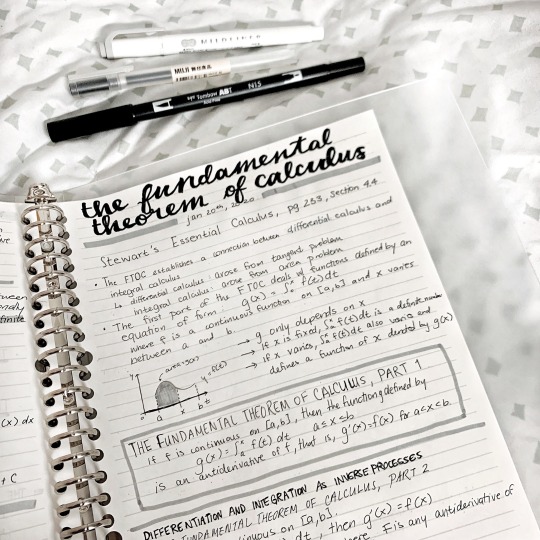 MILDLINER
MUJI 無印良品
Tombow ABT N15
the fundamental
theorem of calculus
jan 20th, 2020
Stewart's Essential Calculus, pg 253, Section 4.4
• The FTOC establishes a connection between differential calculus and
integral calculus
↳ differential calculus: arose from tangent problem
integral calculus: arose from area problem
• The first part of the FTOC deals w/ functions defined by an
equation of form: g(x) = ∫ₐˣ f(t)dt
where f is a continuous function on [a,b] and x varies
between a and b.
→ g only depends on x
→ if x is fixed, ∫ₐˣ f(t)dt is a definite number
→ if x varies, ∫ₐˣ f(t)dt also varies and
defines a function of x denoted by g(x)
y
area=g(x)
y=f(t)
0 a x b t
THE FUNDAMENTAL THEOREM OF CALCULUS, PART 1
If f is continuous on [a,b], then the function g defined by
g(x) = ∫ₐˣ f(t) dt a≤x≤b
is an antiderivative of f, that is, g'(x)=f(x) for a<x<b.
DIFFERENTIATION AND INTEGRATION AS INVERSE PROCESSES
FUNDAMENTAL THEOREM OF CALCULUS, PART 2
continuous on [a,b].
dt, then g'(x) = f(x)
where F is any antiderivative of
finite
(x) dx
+ C